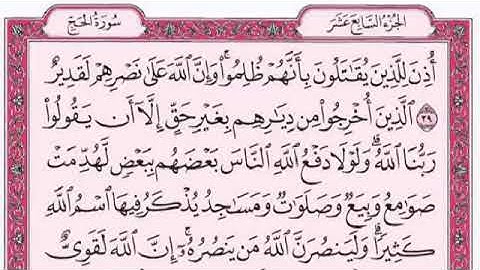 الجزء السابع عشر
سورة الحج
أُذِنَ لِلَّذِينَ يُقَٰتَلُونَ بِأَنَّهُمْ ظُلِمُوا۟ ۚ وَإِنَّ ٱللَّهَ عَلَىٰ نَصْرِهِمْ لَقَدِيرٌ
٣٩ ٱلَّذِينَ أُخْرِجُوا۟ مِن دِيَٰرِهِم بِغَيْرِ حَقٍّ إِلَّآ أَن يَقُولُوا۟
رَبُّنَا ٱللَّهُ ۗ وَلَوْلَا دَفْعُ ٱللَّهِ ٱلنَّاسَ بَعْضَهُم بِبَعْضٍ لَّهُدِّمَتْ
صَوَٰمِعُ وَبِيَعٌ وَصَلَوَٰتٌ وَمَسَٰجِدُ يُذْكَرُ فِيهَا ٱسْمُ ٱللَّهِ
كَثِيرًا ۗ وَلَيَنصُرَنَّ ٱللَّهُ مَن يَنصُرُهُۥٓ ۗ إِنَّ ٱللَّهَ لَقَوِىٌّ